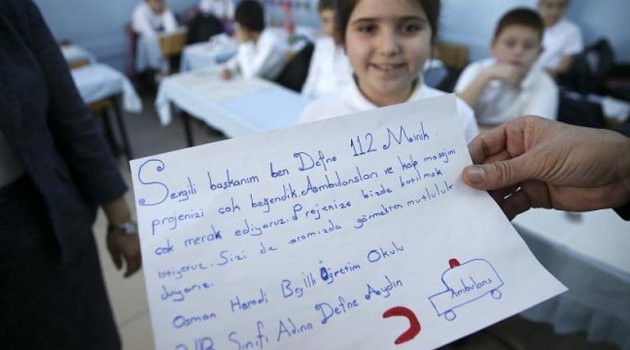 Sevgili başkanım ben Defne 112 Minik
projenizi çok beğendik. Ambulansları ve kalp masajını
çok merak ediyoruz. Projenize bizde katılmak
istiyoruz. Sizi de aramızda görmekten mutluluk
duyarız.
Osman Hamdi Bey İlköğretim Okulu
2/B Sınıfı Adına Defne Aydın
Ambulans